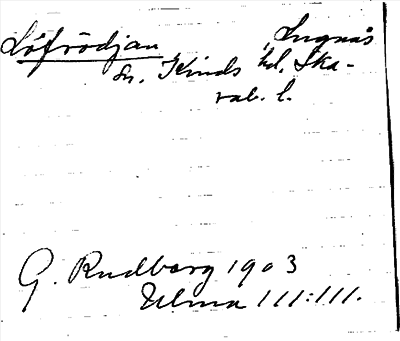 Löfrödjan, Lugnås
sn. Kinds hd. Ska-
rab. l.
G. Rudberg 1903
Ulma 111:111.